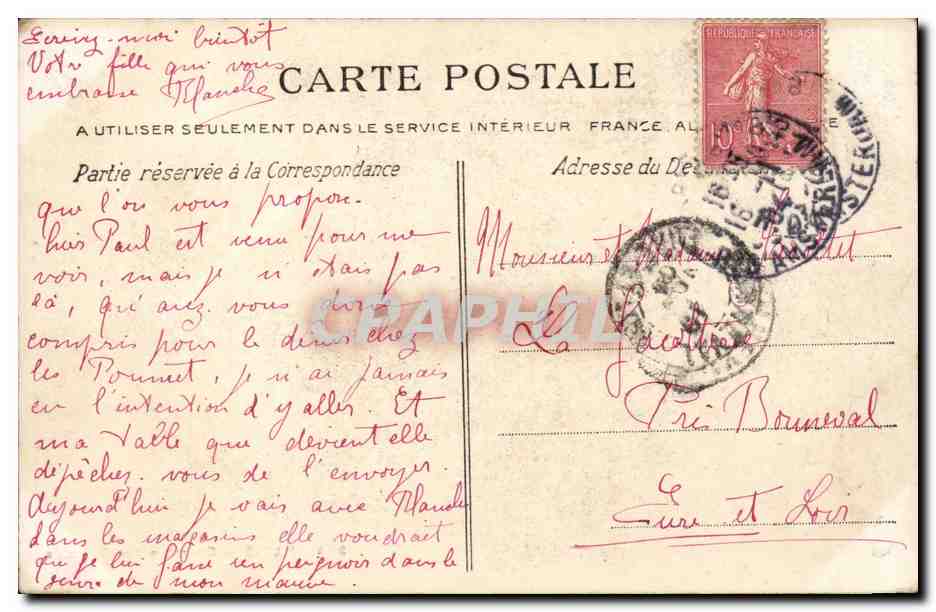 Ecrivez-moi bientôt
Votre fille qui vous
embrasse Blanche
CARTE POSTALE
A UTILISER SEULEMENT DANS LE SERVICE INTÉRIEUR FRANCE, AL
RÉPUBLIQUE FRANÇAISE
10
Partie réservée à la Correspondance
Adresse du De
que l'on vous propon-
Paul est venu pour me
voir, mais je n'étais pas
là, qu'avez vous donc
compris pour le diner chez
les je n'ai jamais
eu l'intention d'y aller. Et
ma table que devient elle
dépêchez vous de l'envoyer.
Aujourd'hui je vais avec Blanche
dans les magasins elle voudrait
que je lui fasse un peignoir dans le
genre de mon mauve.
Monsieur et Madame
La
Près Bonneval
Eure et Loir
CRAPHIL